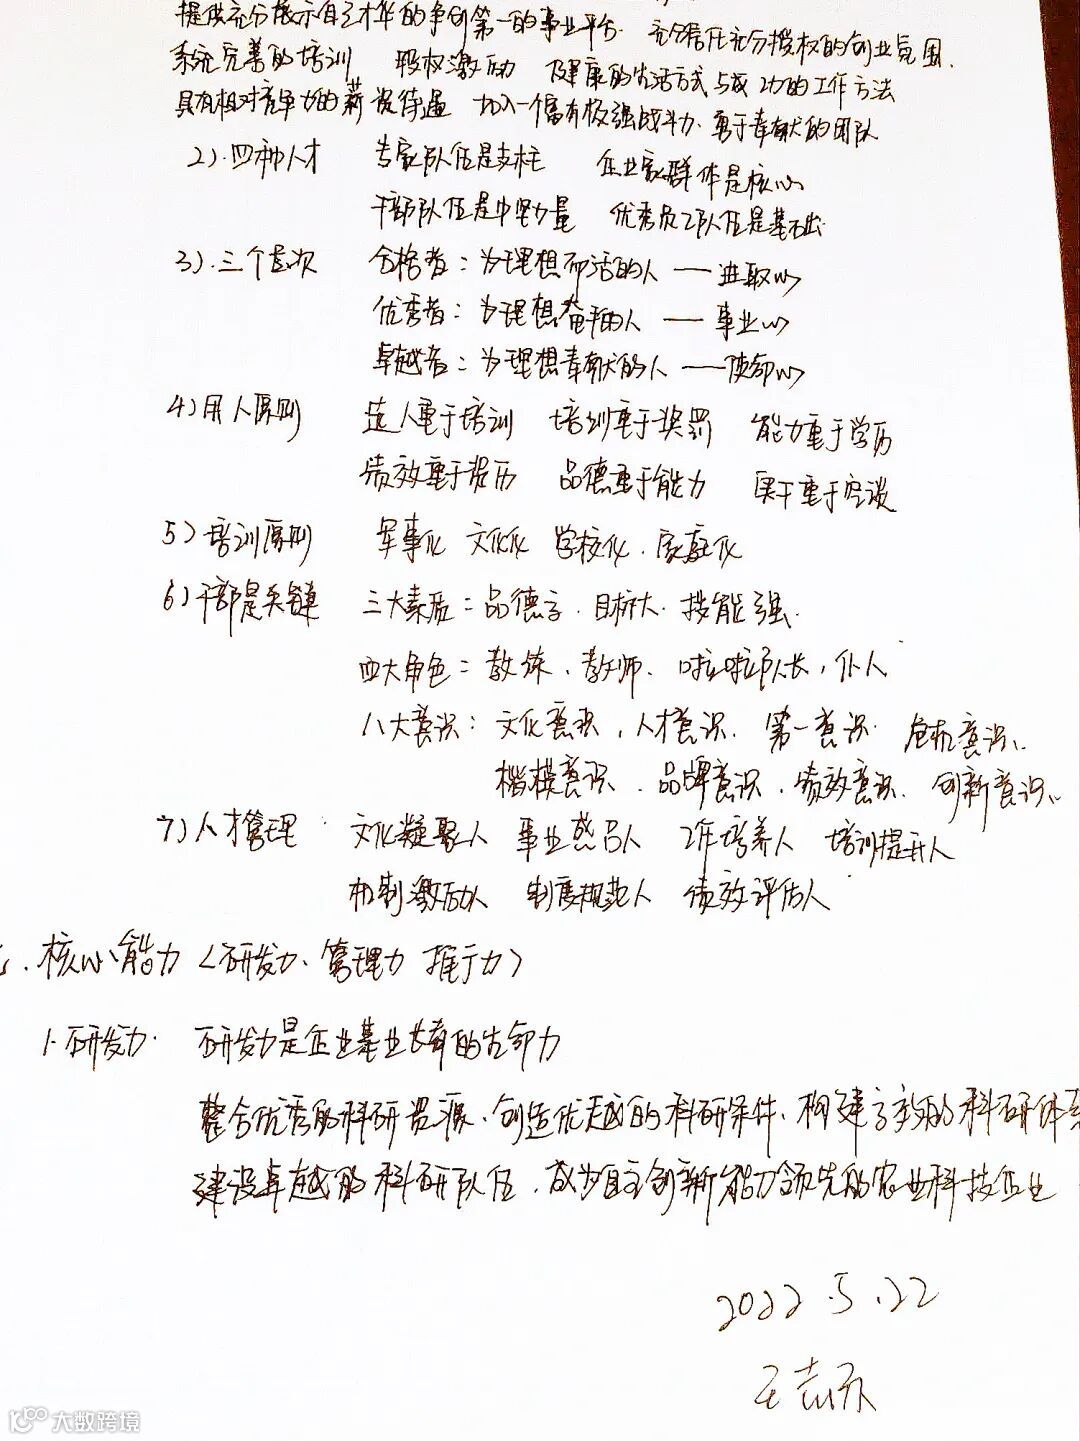 提供充分展示自己才华的争创第一的事业平台. 充分信任充分授权的创业氛围.
系统完善的培训 股权激励 健康的生活方式与成功的工作方法
具有相对竞争力的薪资待遇 加入一个富有极强战斗力.勇于奉献的团队
2).四种人才 专家队伍是支柱 企业家群体是核心
干部队伍是中坚力量 优秀员工队伍是基础
3).三个层次 合格者:为理想而活的人——进取心
优秀者:为理想奋斗的人——事业心
卓越者:为理想奉献的人——使命心
4)用人原则 选人重于培训 培训重于奖罚 能力重于学历
绩效重于资历 品德重于能力 实干重于空谈
5)培训原则 军事化 文化化 学校化.家庭化
6)干部是关键 三大素质:品德高.目标大.技能强.
四大角色:教练.教师.啦啦队长,仆人
八大意识:文化意识,人才意识.第一意识.危机意识、
楷模意识.品牌意识,绩效意识.创新意识、
7)人才管理 文化凝聚人 事业感召人 工作培养人 培训提升人
机制激励人 制度规范人 绩效评估人
.核心能力<研发力、管理力 推广力>
1.研发力. 研发力是企业基业长青的生命力
整合优秀的科研资源、创造优越的科研条件、构建高效的科研体系
建设卓越的科研队伍.成为自主创新能力领先的农业科技企业
2022.5.22
大数跨境